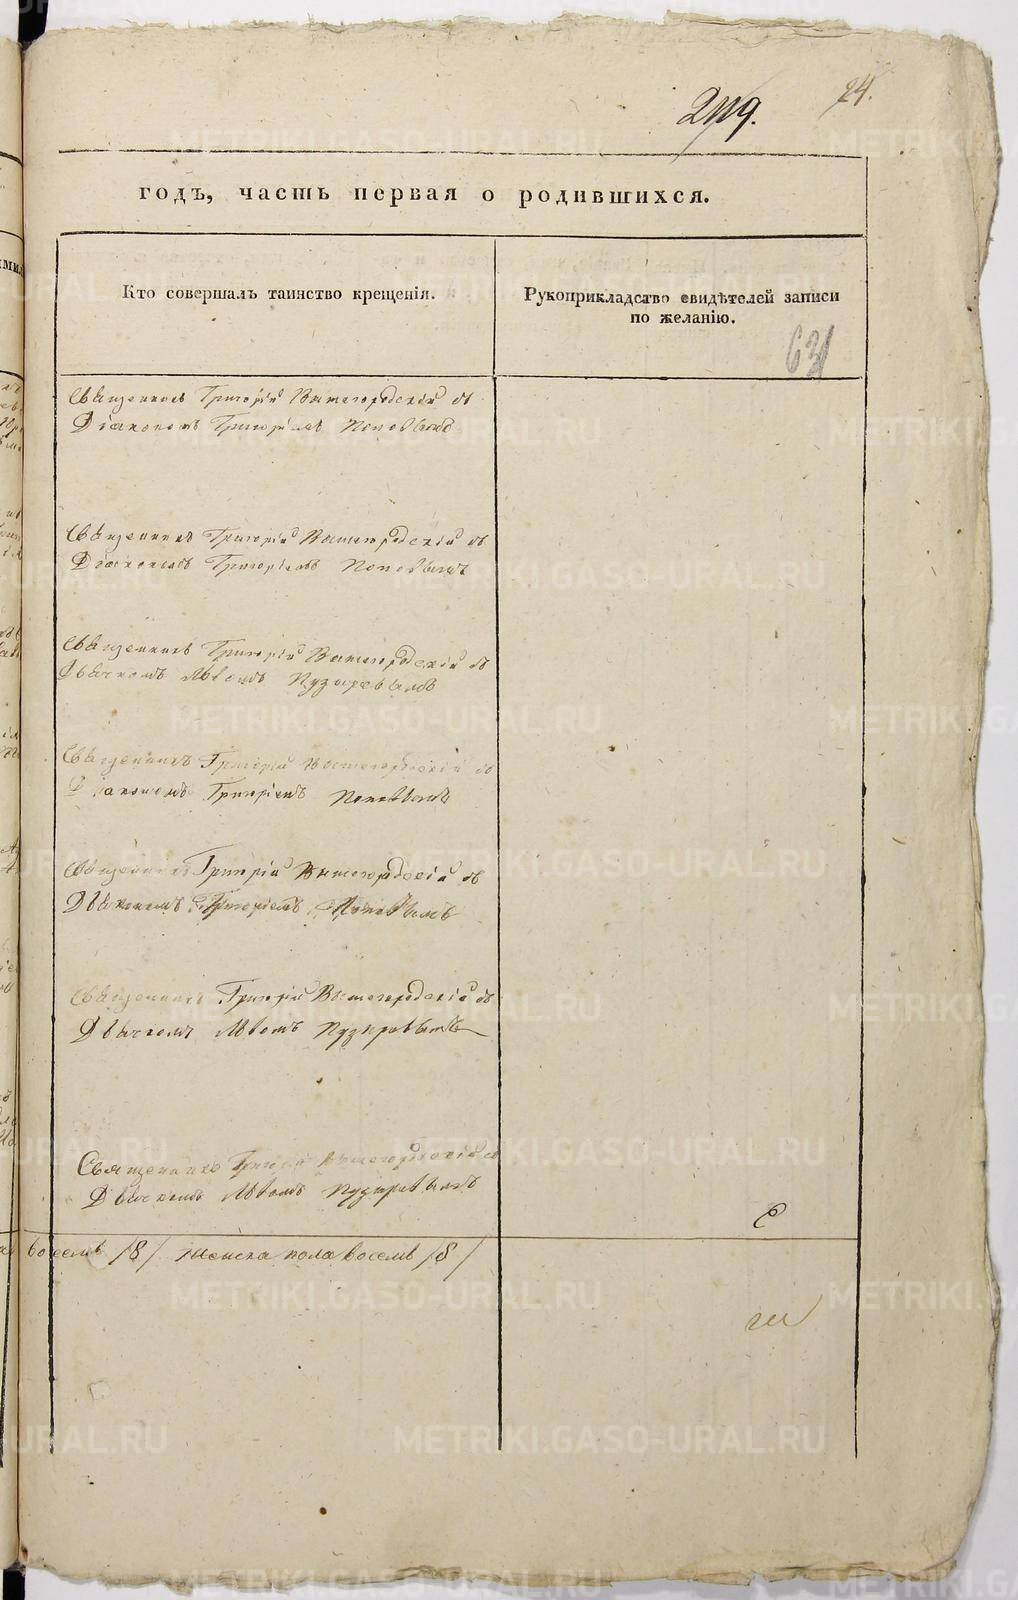 24.
годъ, часть первая о родившихся.
Кто совершалъ таинство крещенія.
Рукоприкладство свидѣтелей записи
по желанію.
63
Священникъ Григорій Вышегородскій съ
Діакономъ Григоріемъ Поповымъ
Священникъ Григорій Вышегородскій съ
Діакономъ Григоріемъ Поповымъ
Священникъ Григорій Вышегородскій съ
Дьячкомъ Львомъ Пузыревымъ
Священникъ Григорій Вышегородскій съ
Діакономъ Григоріемъ Поповымъ
Священникъ Григорій Вышегородскій съ
Діакономъ Григоріемъ Поповымъ
Священникъ Григорій Вышегородскій съ
Дьячкомъ Львомъ Пузыревымъ
Священникъ Григорій Вышегородскій съ
Дьячкомъ Львомъ Пузыревымъ
восемь /8/ женска пола восемь /8/
METRIKI.GASO-URAL.RU